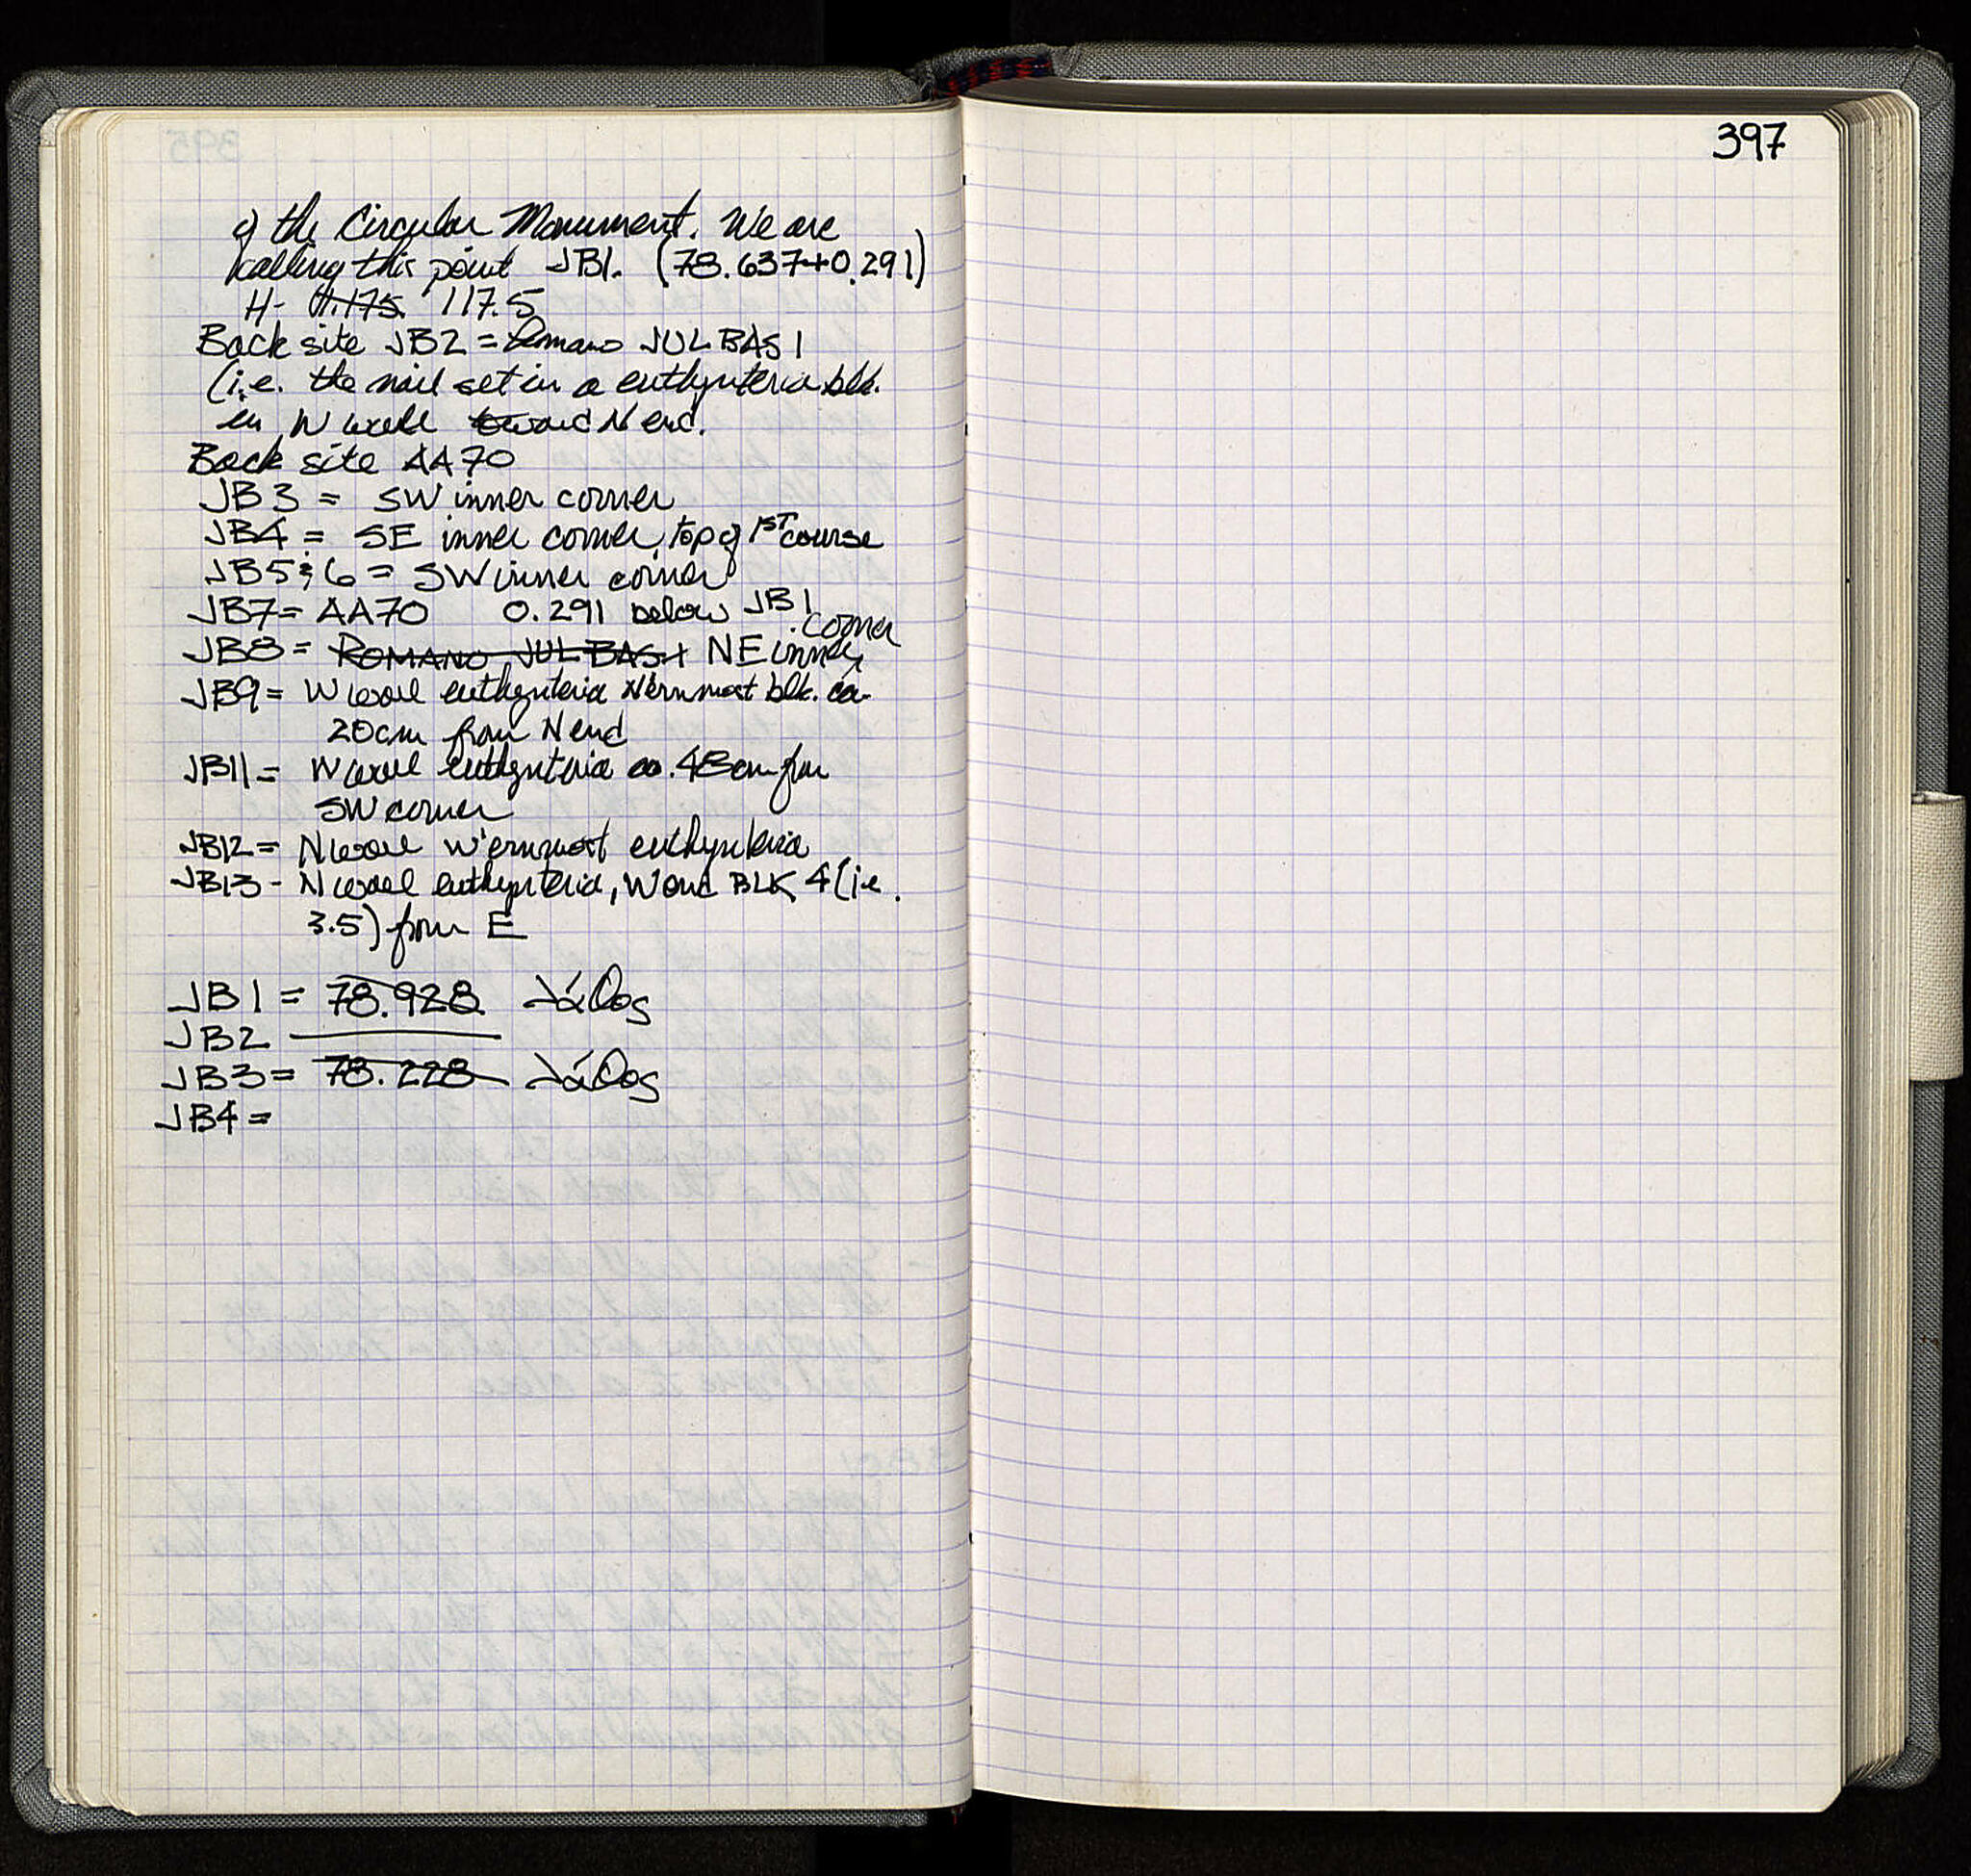 of the Circular Monument. We are
calling this point JB1. (78.637+0.291)
H- 11.175 117.5
Back site JB2 = Romano JULBAS1
(i.e. the nail set in a euthynteria blk.
in W wall toward N end.
Back site AA70
JB3 = SW inner corner
JB4 = SE inner corner, top of 1ST course
JB5 & 6 = SW inner corner
JB7 = AA70 0.291 below JB1
JB8 = ROMANO JULBAS1 NE inner corner
JB9 = W wall euthynteria N'ernmost blk. ca.
20cm from N end
JB11 = W wall euthynteria ca. 48cm from
SW corner
JB12 = N wall W'ernmost euthynteria
JB13 - N wall euthynteria, W end BLK 4 (i.e.
3.5) from E
JB1 = 78.928 λάθος
JB2
JB3 = 78.228 λάθος
JB4 =
397